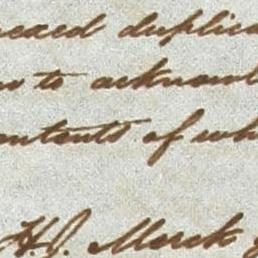 nexed duplica
to acknowl
ontents of wh
H.J. Merck